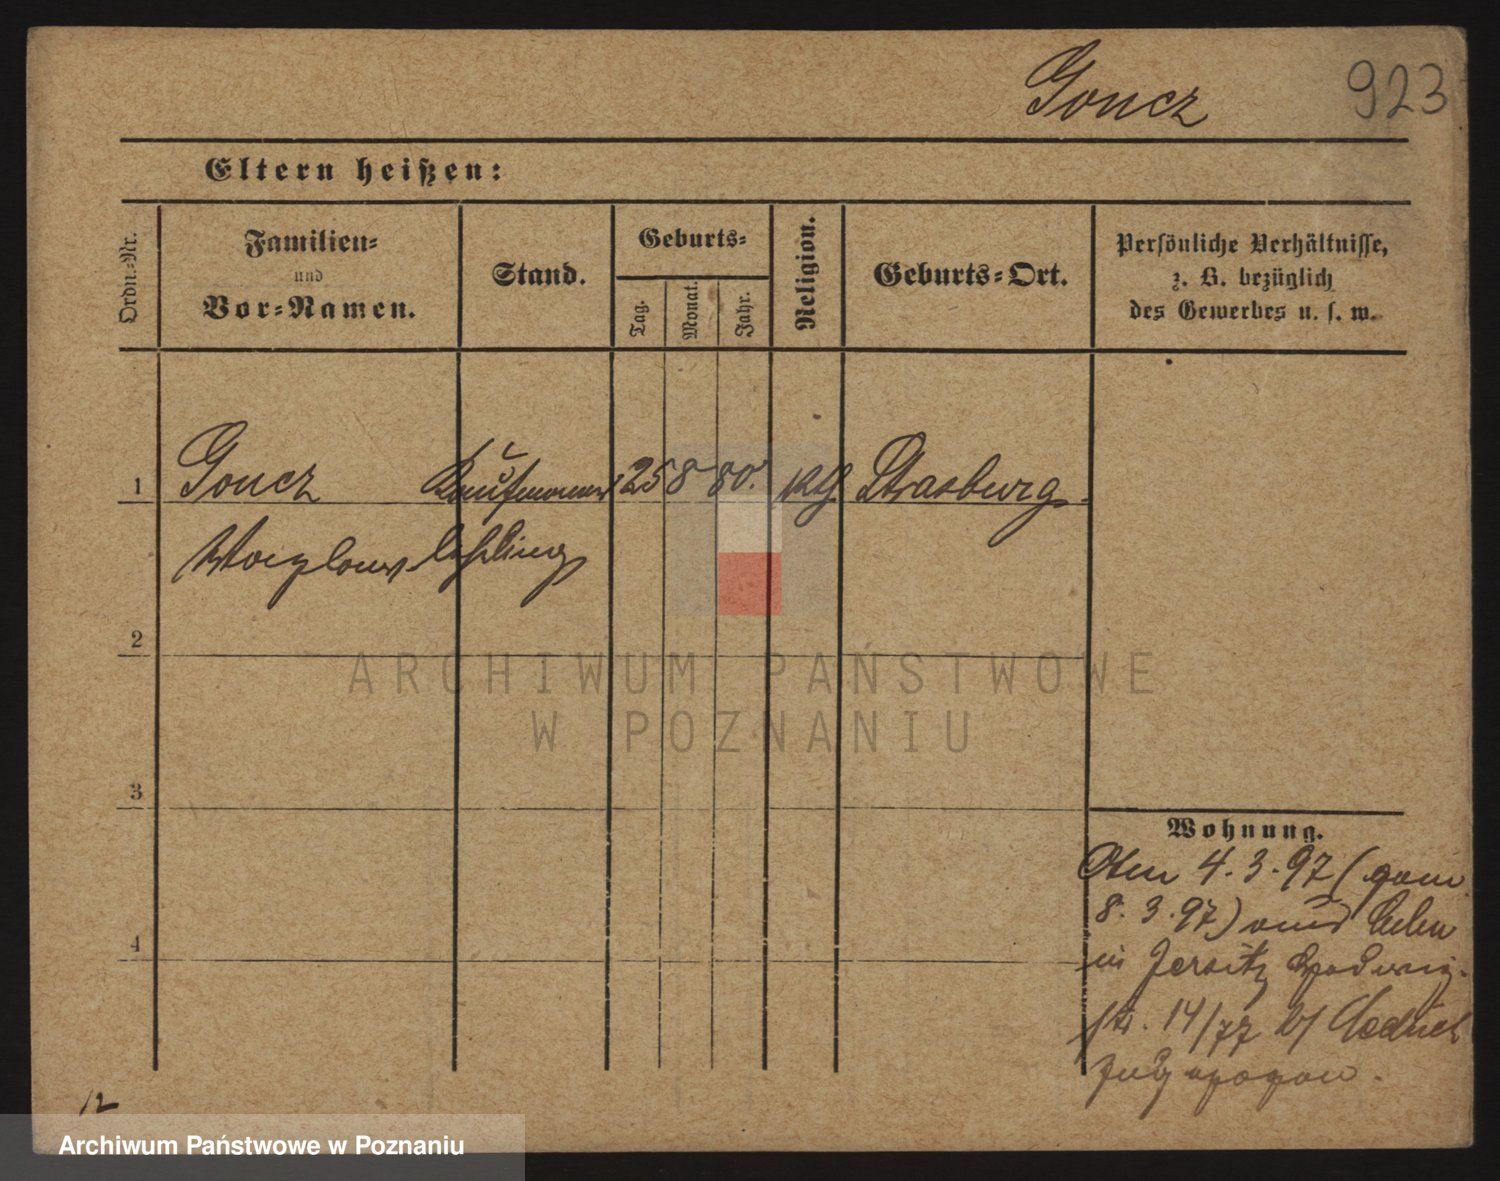 Goncz 923
Eltern heißen:
Ordn.-Nr.
Familien-
und
Vor-Namen.
Stand.
Geburts-
Tag.
Monat.
Jahr.
Religion.
Geburts-Ort.
Persönliche Verhältnisse,
z. B. bezüglich
des Gewerbes u. s. w.
1 Goncz Kaufmanns 25 8 80. kth Strasburg.
lehrling
2
3
4
Wohnung.
4.3.97 (
8.3.97) aus
in Jersitz
str. 14/77 b/
zugezogen.
12
ARCHIWUM PAŃSTWOWE
W POZNANIU
Archiwum Państwowe w Poznaniu